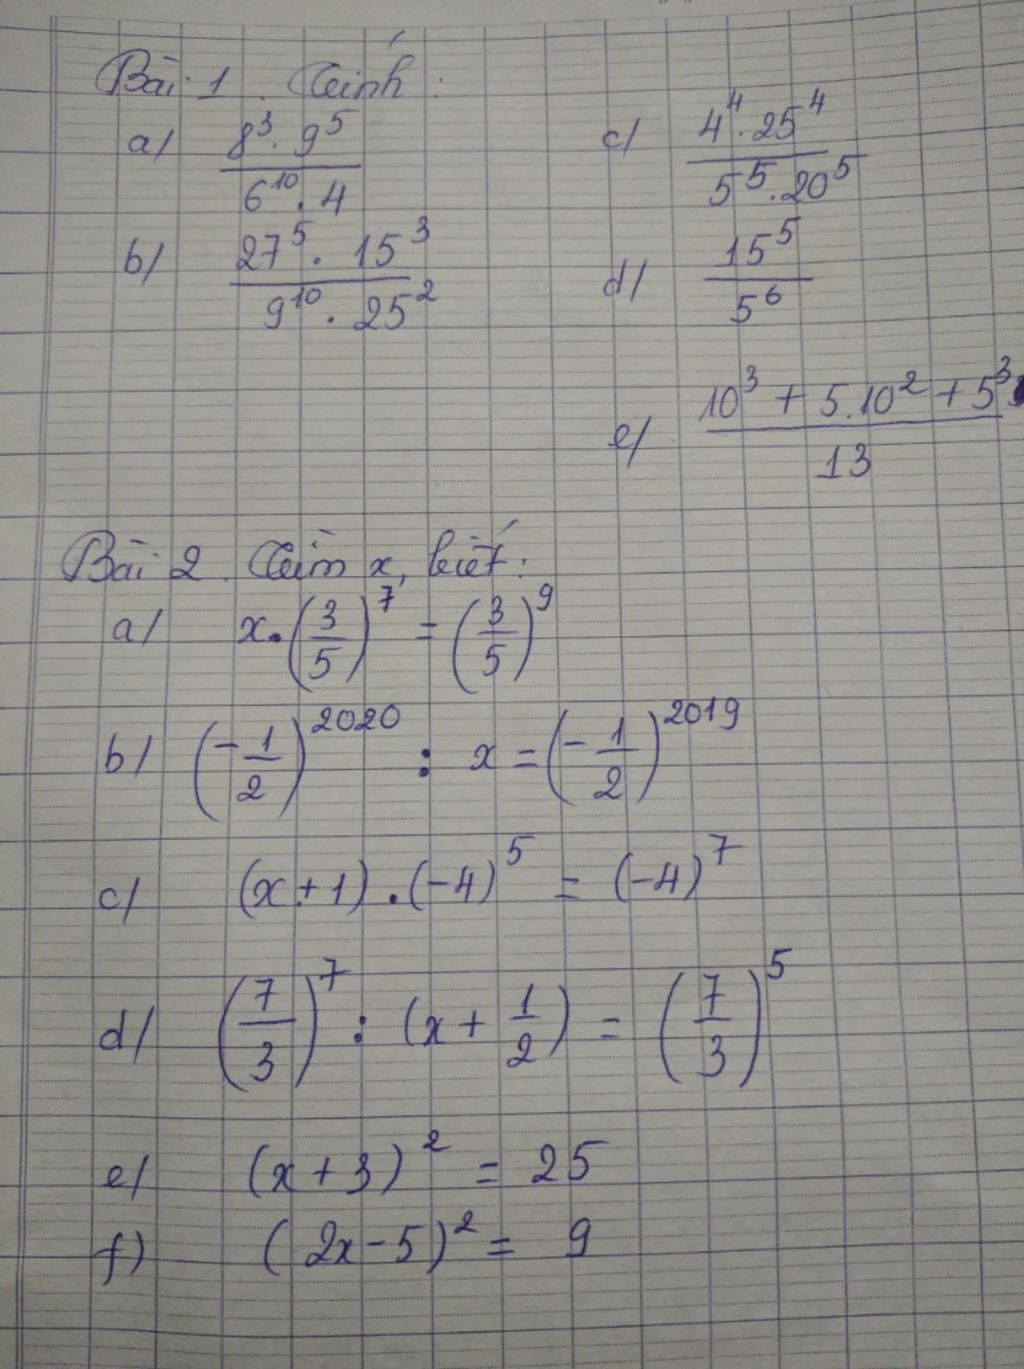 Bài 1. Tính:
a/ \frac{8^3 . 9^5}{6^{10} . 4}
c/ \frac{4^4 . 25^4}{5^5 . 20^5}
b/ \frac{27^5 . 15^3}{9^{10} . 25^2}
d/ \frac{15^5}{5^6}
e/ \frac{10^3 + 5.10^2 + 5^3}{13}
Bài 2. Tìm x, biết:
a/ x . (\frac{3}{5})^7 = (\frac{3}{5})^9
b/ (-\frac{1}{2})^{2020} : x = (-\frac{1}{2})^{2019}
c/ (x + 1) . (-4)^5 = (-4)^7
d/ (\frac{7}{3})^7 : (x + \frac{1}{2}) = (\frac{7}{3})^5
e/ (x + 3)^2 = 25
f) (2x - 5)^2 = 9